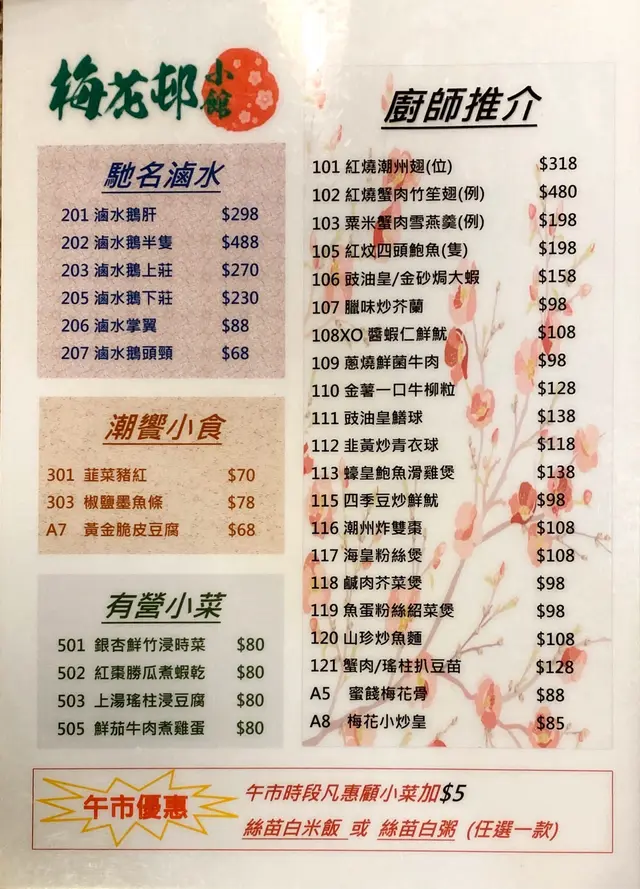 梅花邨小館
馳名滷水
201 滷水鵝肝 $298
202 滷水鵝半隻 $488
203 滷水鵝上莊 $270
205 滷水鵝下莊 $230
206 滷水掌翼 $88
207 滷水鵝頭頸 $68
潮饗小食
301 韮菜豬紅 $70
303 椒鹽墨魚條 $78
A7 黃金脆皮豆腐 $68
有營小菜
501 銀杏鮮竹浸時菜 $80
502 紅棗勝瓜煮蝦乾 $80
503 上湯瑤柱浸豆腐 $80
505 鮮茄牛肉煮雞蛋 $80
廚師推介
101 紅燒潮州翅(位) $318
102 紅燒蟹肉竹笙翅(例) $480
103 粟米蟹肉雪燕羹(例) $198
105 紅炆四頭鮑魚(隻) $198
106 豉油皇/金砂焗大蝦 $158
107 臘味炒芥蘭 $98
108XO 醬蝦仁鮮魷 $108
109 蔥燒鮮菌牛肉 $98
110 金薯一口牛柳粒 $128
111 豉油皇鱔球 $138
112 韭黃炒青衣球 $118
113 蠔皇鮑魚滑雞煲 $138
115 四季豆炒鮮魷 $98
116 潮州炸雙棗 $108
117 海皇粉絲煲 $108
118 鹹肉芥菜煲 $98
119 魚蛋粉絲紹菜煲 $98
120 山珍炒魚麵 $108
121 蟹肉/瑤柱扒豆苗 $128
A5 蜜餞梅花骨 $88
A8 梅花小炒皇 $85
午市優惠
午市時段凡惠顧小菜加$5
絲苗白米飯 或 絲苗白粥 (任選一款)